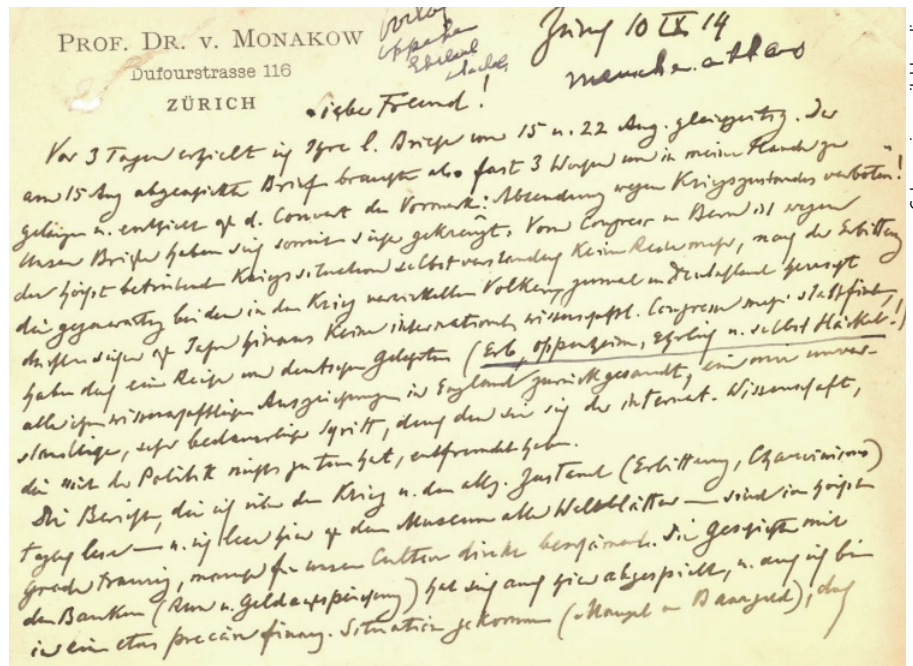 PROF. DR. V. MONAKOW
Dufourstrasse 116
ZÜRICH
Zürich 10 IX 14
Lieber Freund!
Vor 3 Tagen erhielt ich Ihre l. Briefe vom 15 u. 22 Aug. gleichzeitig. Der
am 15 Aug abgeschickte Brief brauchte also fast 3 Wochen um in meine Hände zu
gelangen u. enthielt auf d. Couvert den Vermerk: Absendung wegen Kriegszustandes verboten!"
Unsere Briefe haben sich somit sicher gekreuzt. Vom Congress in Bern ist wegen
der höchst betrübenden Kriegssituation selbstverständlich keine Rede mehr, nach der Erbitterung
die gegenwärtig bei den in den Krieg verwickelten Völkern, zumal in Deutschland herrscht
dürften sicher auf Jahre hinaus keine internationale wissenschaftl. Congresse mehr stattfinden,
haben doch eine Reihe von deutschen Gelehrten (Erb, Oppenheim, Ehrlich u. selbst Häckel!)
alle ihre wissenschaftlichen Auszeichnungen in England zurückgesandt, ein mir unver-
ständlicher, sehr bedauerlicher Schritt, durch den sie sich der internat. Wissenschaft,
die mit der Politik nichts zu tun hat, entfremdet haben.
Die Berichte, die ich über den Krieg u. den allg. Zustand (Erbitterung, Chauvinismus)
täglich lese — u. ich lese hier auf dem Museum alle Weltblätter — sind im höchsten
Grade traurig, manche für unsere Cultur direkt beschämend. Die Geschichte mit
den Banken (Run u. Geldausspeichung) hat sich auch hier abgespielt, u. auch ich bin
in eine etwas precäre finanz. Situation gekommen (Mangel an Baargeld), doch